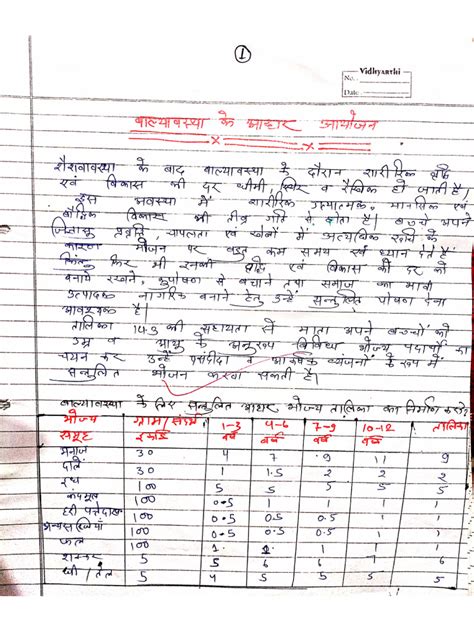 1
Vidhyarthi
No.
Date
बाल्यावस्था के आहार आयोजन
शैशवावस्था के बाद बाल्यावस्था के दौरान शारीरिक वृद्धि
एवं विकास की दर धीमी, स्थिर व रैखिक हो जाती है।
इस अवस्था में शारीरिक गत्यात्मक, मानसिक एवं
बौद्धिक विकास भी तीव्र गति से होता है। बच्चे अपने
जिज्ञासु प्रवृत्ति, चपलता एवं खेलों में अत्यधिक रुचि के
कारण भोजन पर बहुत कम समय एवं ध्यान देते हैं
किन्तु फिर भी इनकी वृद्धि एवं विकास की दर को
बनाये रखने, कुपोषण से बचाने तथा समाज का भावी
उत्पादक नागरिक बनाने हेतु उन्हें सन्तुलित पोषण देना
आवश्यक है।
तालिका 14.3 की सहायता से माता अपने बच्चों को
उम्र व आयु के अनुरूप विविध भोज्य पदार्थों का
चयन कर उन्हें पसंदीदा व आकर्षक व्यंजनों के रूप में
सन्तुलित भोजन करवा सकती है।
बाल्यावस्था के लिए सन्तुलित आहार भोज्य तालिका का निर्माण करो
भोज्य ग्राम / 1-3 4-6 7-9 10-12 तालिका
समूह इकाई वर्ष वर्ष वर्ष वर्ष
अनाज 30 4 7 9 11 9
दालें 30 1 1.5 2 2 2
दूध 100 5 5 5 5 5
कंदमूल 100 0.5 1 1
हरी पत्तेदार 100 0.5 0.5 0.5 1
अन्य सब्जियाँ 100 0.5 0.5 0.5 1
फल 100 1 1 1
शक्कर 5 5 6 6 6
घी / तेल 5 4 5 5 5 5